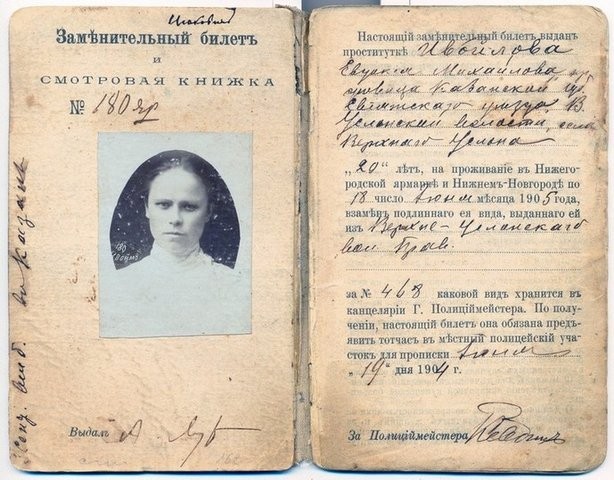 Замѣнительный билетъ
и
СМОТРОВАЯ КНИЖКА
№ 180 яр
Выдалъ
въ Казань
Настоящій замѣнительный билетъ выданъ
проституткѣ Ивойлова
Евдокія Михайлова
Казанской губ.
Свіяжскаго уѣзда, В.
Услонской волости, села
Верхняго Услона
„20“ лѣтъ, на проживаніе въ Нижего-
родской ярмаркѣ и Нижнемъ-Новгородѣ по
18 число Іюня мѣсяца 1905 года,
взамѣнъ подлиннаго ея вида, выданнаго ей
изъ Верхне-Услонскаго
вол. Прав.
за № 468 каковой видъ хранится въ
канцеляріи Г. Полиціймейстера. По полу-
ченіи, настоящій билетъ она обязана предъ-
явить тотчасъ въ мѣстный полицейскій уча-
стокъ для прописки Іюня
„19“ дня 1904 г.
За Полиціймейстера